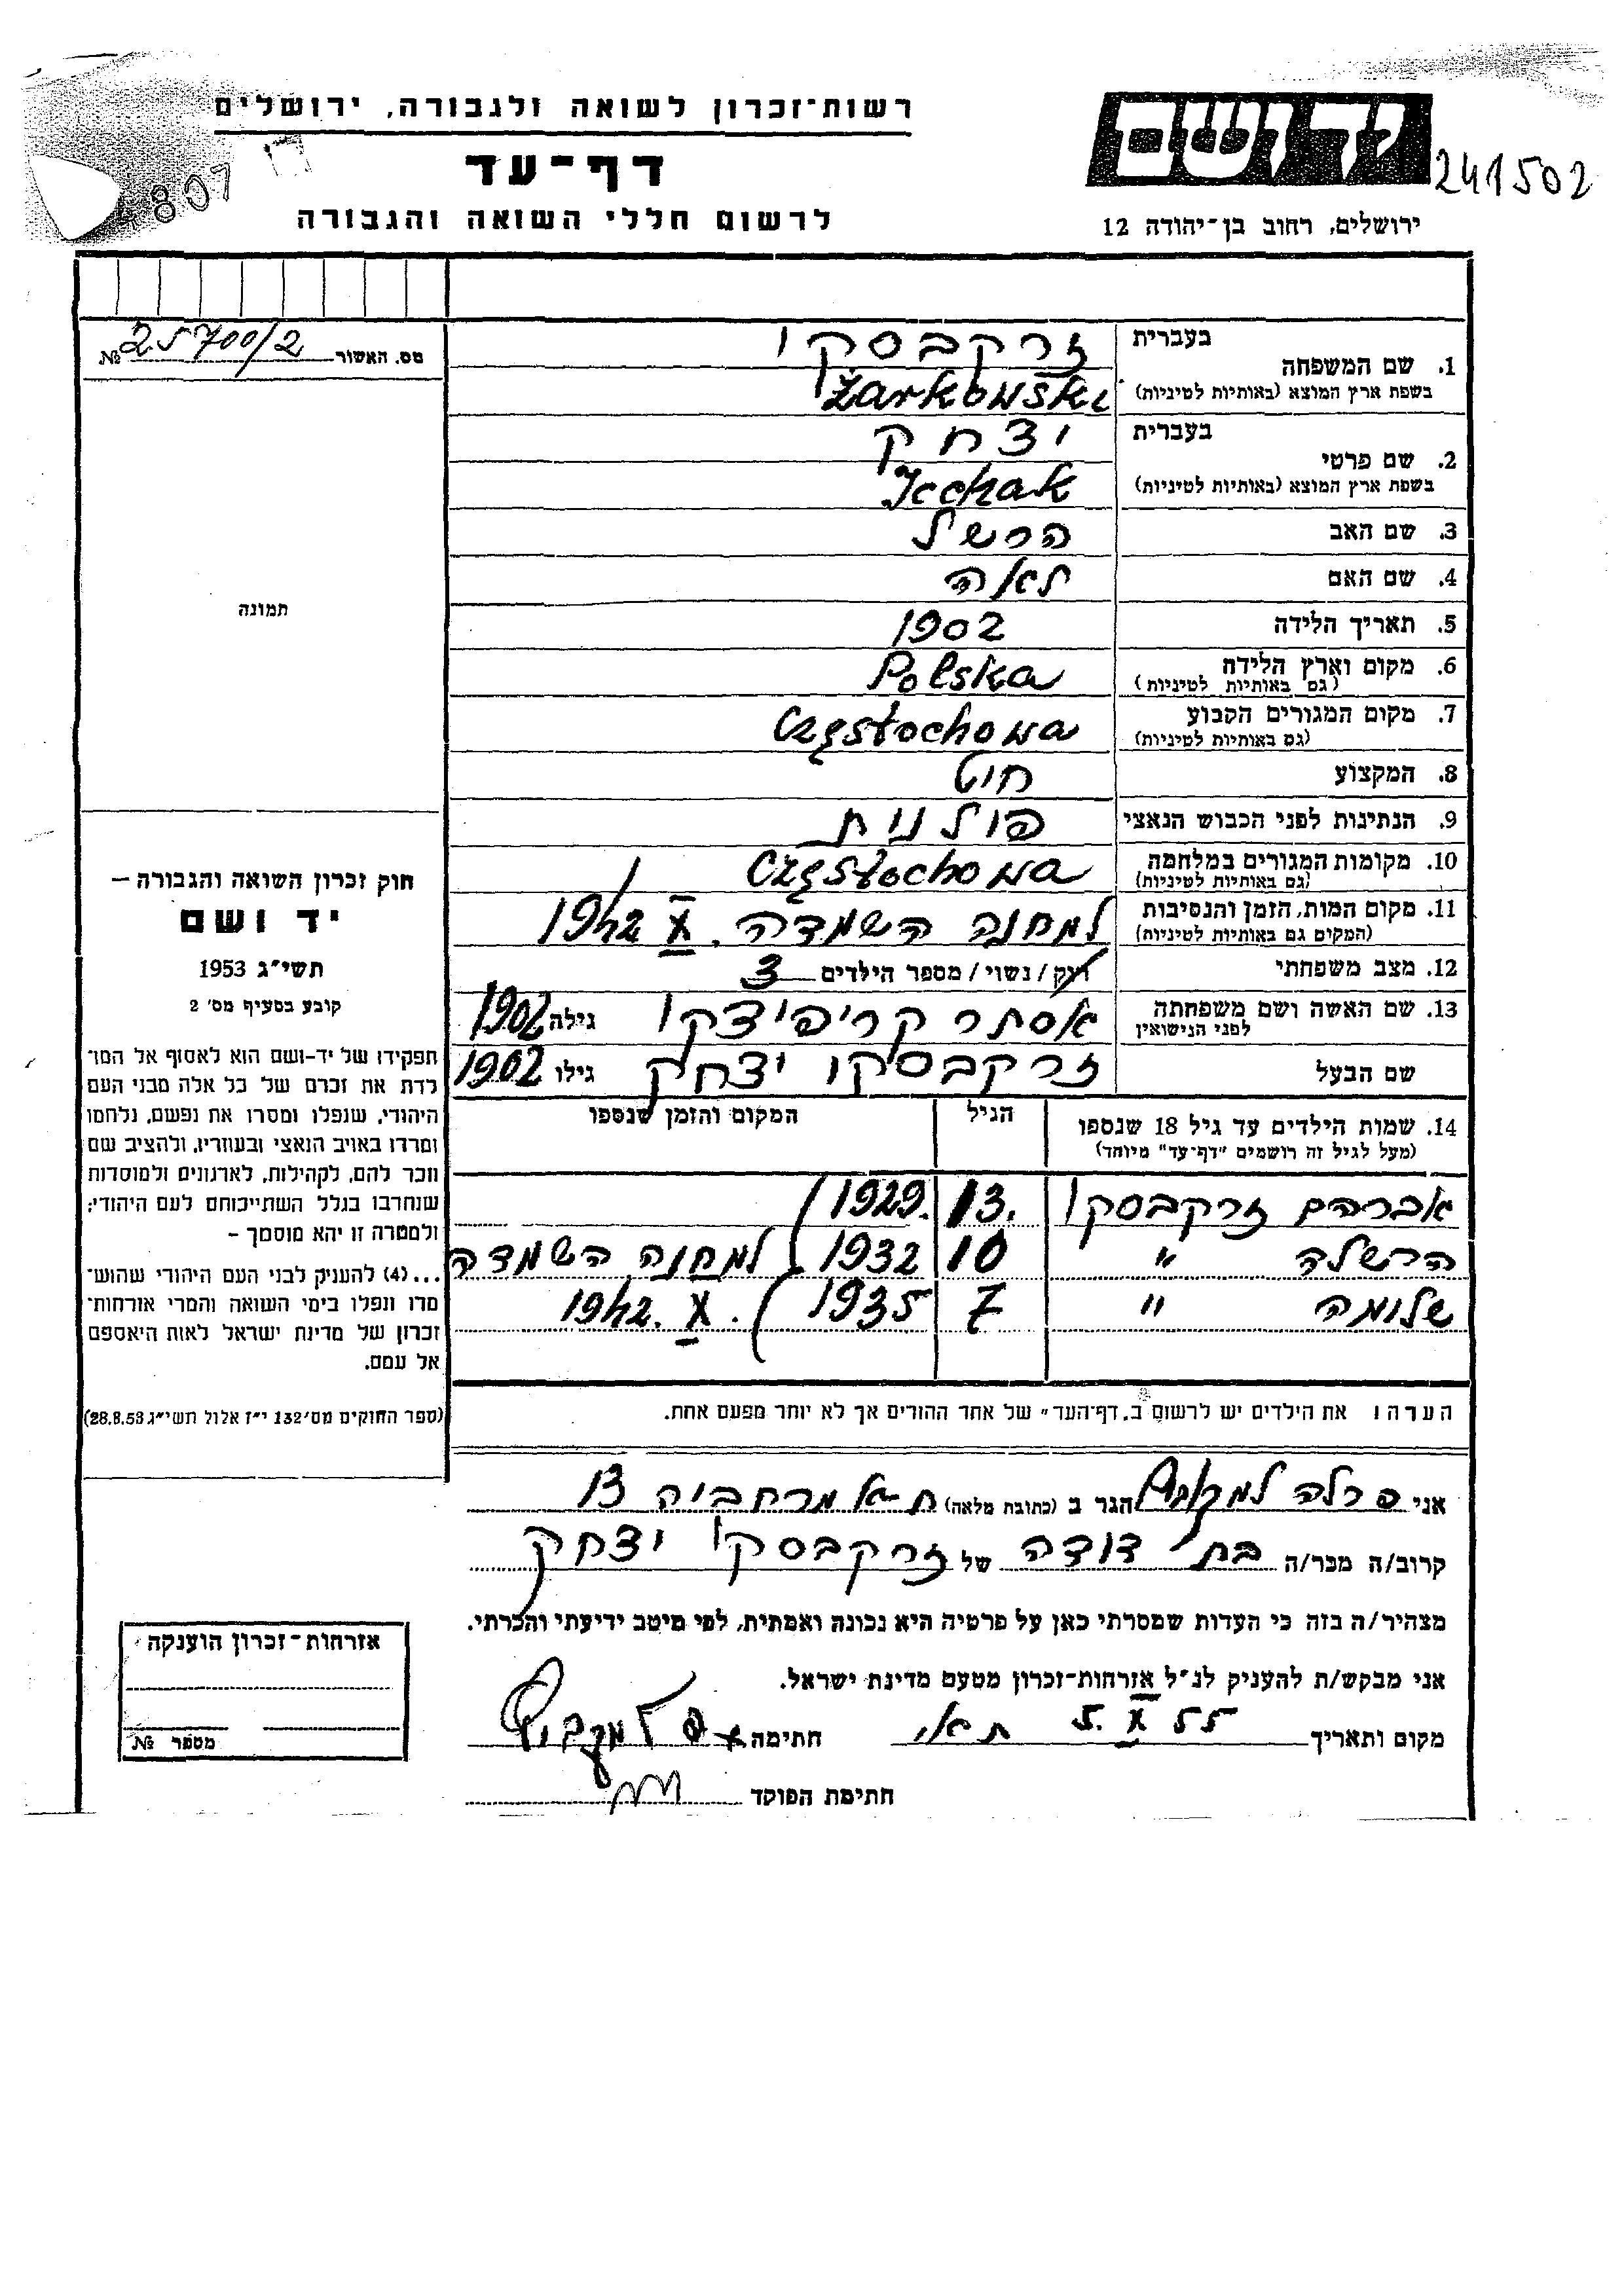 רשות-זכרון לשואה ולגבורה, ירושלים
דף-עד
לרשום חללי השואה והגבורה
ידושם
241502
ירושלים, רחוב בן-יהודה 12
מס. האשור 25700/2 №
תמונה
חוק זכרון השואה והגבורה –
יד ושם
תשי״ג 1953
קובע בסעיף מס׳ 2
תפקידו של יד-ושם הוא לאסוף אל המו-
לדת את זכרם של כל אלה מבני העם
היהודי, שנפלו ומסרו את נפשם, נלחמו
ומרדו באויב הנאצי ובעוזריו, ולהציב שם
וזכר להם, לקהילות, לארגונים ולמוסדות
שנחרבו בגלל השתייכותם לעם היהודי;
ולמטרה זו יהא מוסמך –
...(4) להעניק לבני העם היהודי שהוש-
מדו ונפלו בימי השואה והמרי אזרחות-
זכרון של מדינת ישראל לאות היאספם
אל עמם.
(ספר החוקים מס׳ 132 י״ז אלול תשי״ג 28.8.53)
בעברית זרקבסקי
1. שם המשפחה
בשפת ארץ המוצא (באותיות לטיניות) Żarkowski
בעברית יצחק
2. שם פרטי
בשפת ארץ המוצא (באותיות לטיניות) Icchak
3. שם האב הרשל
4. שם האם לאה
5. תאריך הלידה 1902
6. מקום וארץ הלידה Polska
(גם באותיות לטיניות)
7. מקום המגורים הקבוע Częstochowa
(גם באותיות לטיניות)
8. המקצוע חיט
9. הנתינות לפני הכבוש הנאצי פולנית
10. מקומות המגורים במלחמה Częstochowa
(גם באותיות לטיניות)
11. מקום המות, הזמן והנסיבות למחנה השמדה. X 1942
(המקום גם באותיות לטיניות)
12. מצב משפחתי רוק / נשוי / מספר הילדים 3
13. שם האשה ושם משפחתה אסתר קריפיצקי גילה 1902
לפני הנישואין
שם הבעל זרקבסקי יצחק גילו 1902
14. שמות הילדים עד גיל 18 שנספו הגיל המקום והזמן שנספו
(מעל לגיל זה רושמים "דף-עד" מיוחד)
אברהם זרקבסקי 13. 1929.
הרשלה " 10 1932 למחנה השמדה
שלומה " 7 1935 X. 1942
הערה: את הילדים יש לרשום ב„דף-העד" של אחד ההורים אך לא יותר מפעם אחת.
אני פרלה הגר ב (כתובת מלאה) ת-א מרחביה 13
קרוב/ה מכר/ה בת דודה של זרקבסקי יצחק
מצהיר/ה בזה כי העדות שמסרתי כאן על פרטיה היא נכונה ואמתית, לפי מיטב ידיעתי והכרתי.
אני מבקש/ת להעניק לנ״ל אזרחות-זכרון מטעם מדינת ישראל.
מקום ותאריך ת-א, 5. X 55 חתימה
חתימת הפוקד
אזרחות-זכרון הוענקה
מספר №